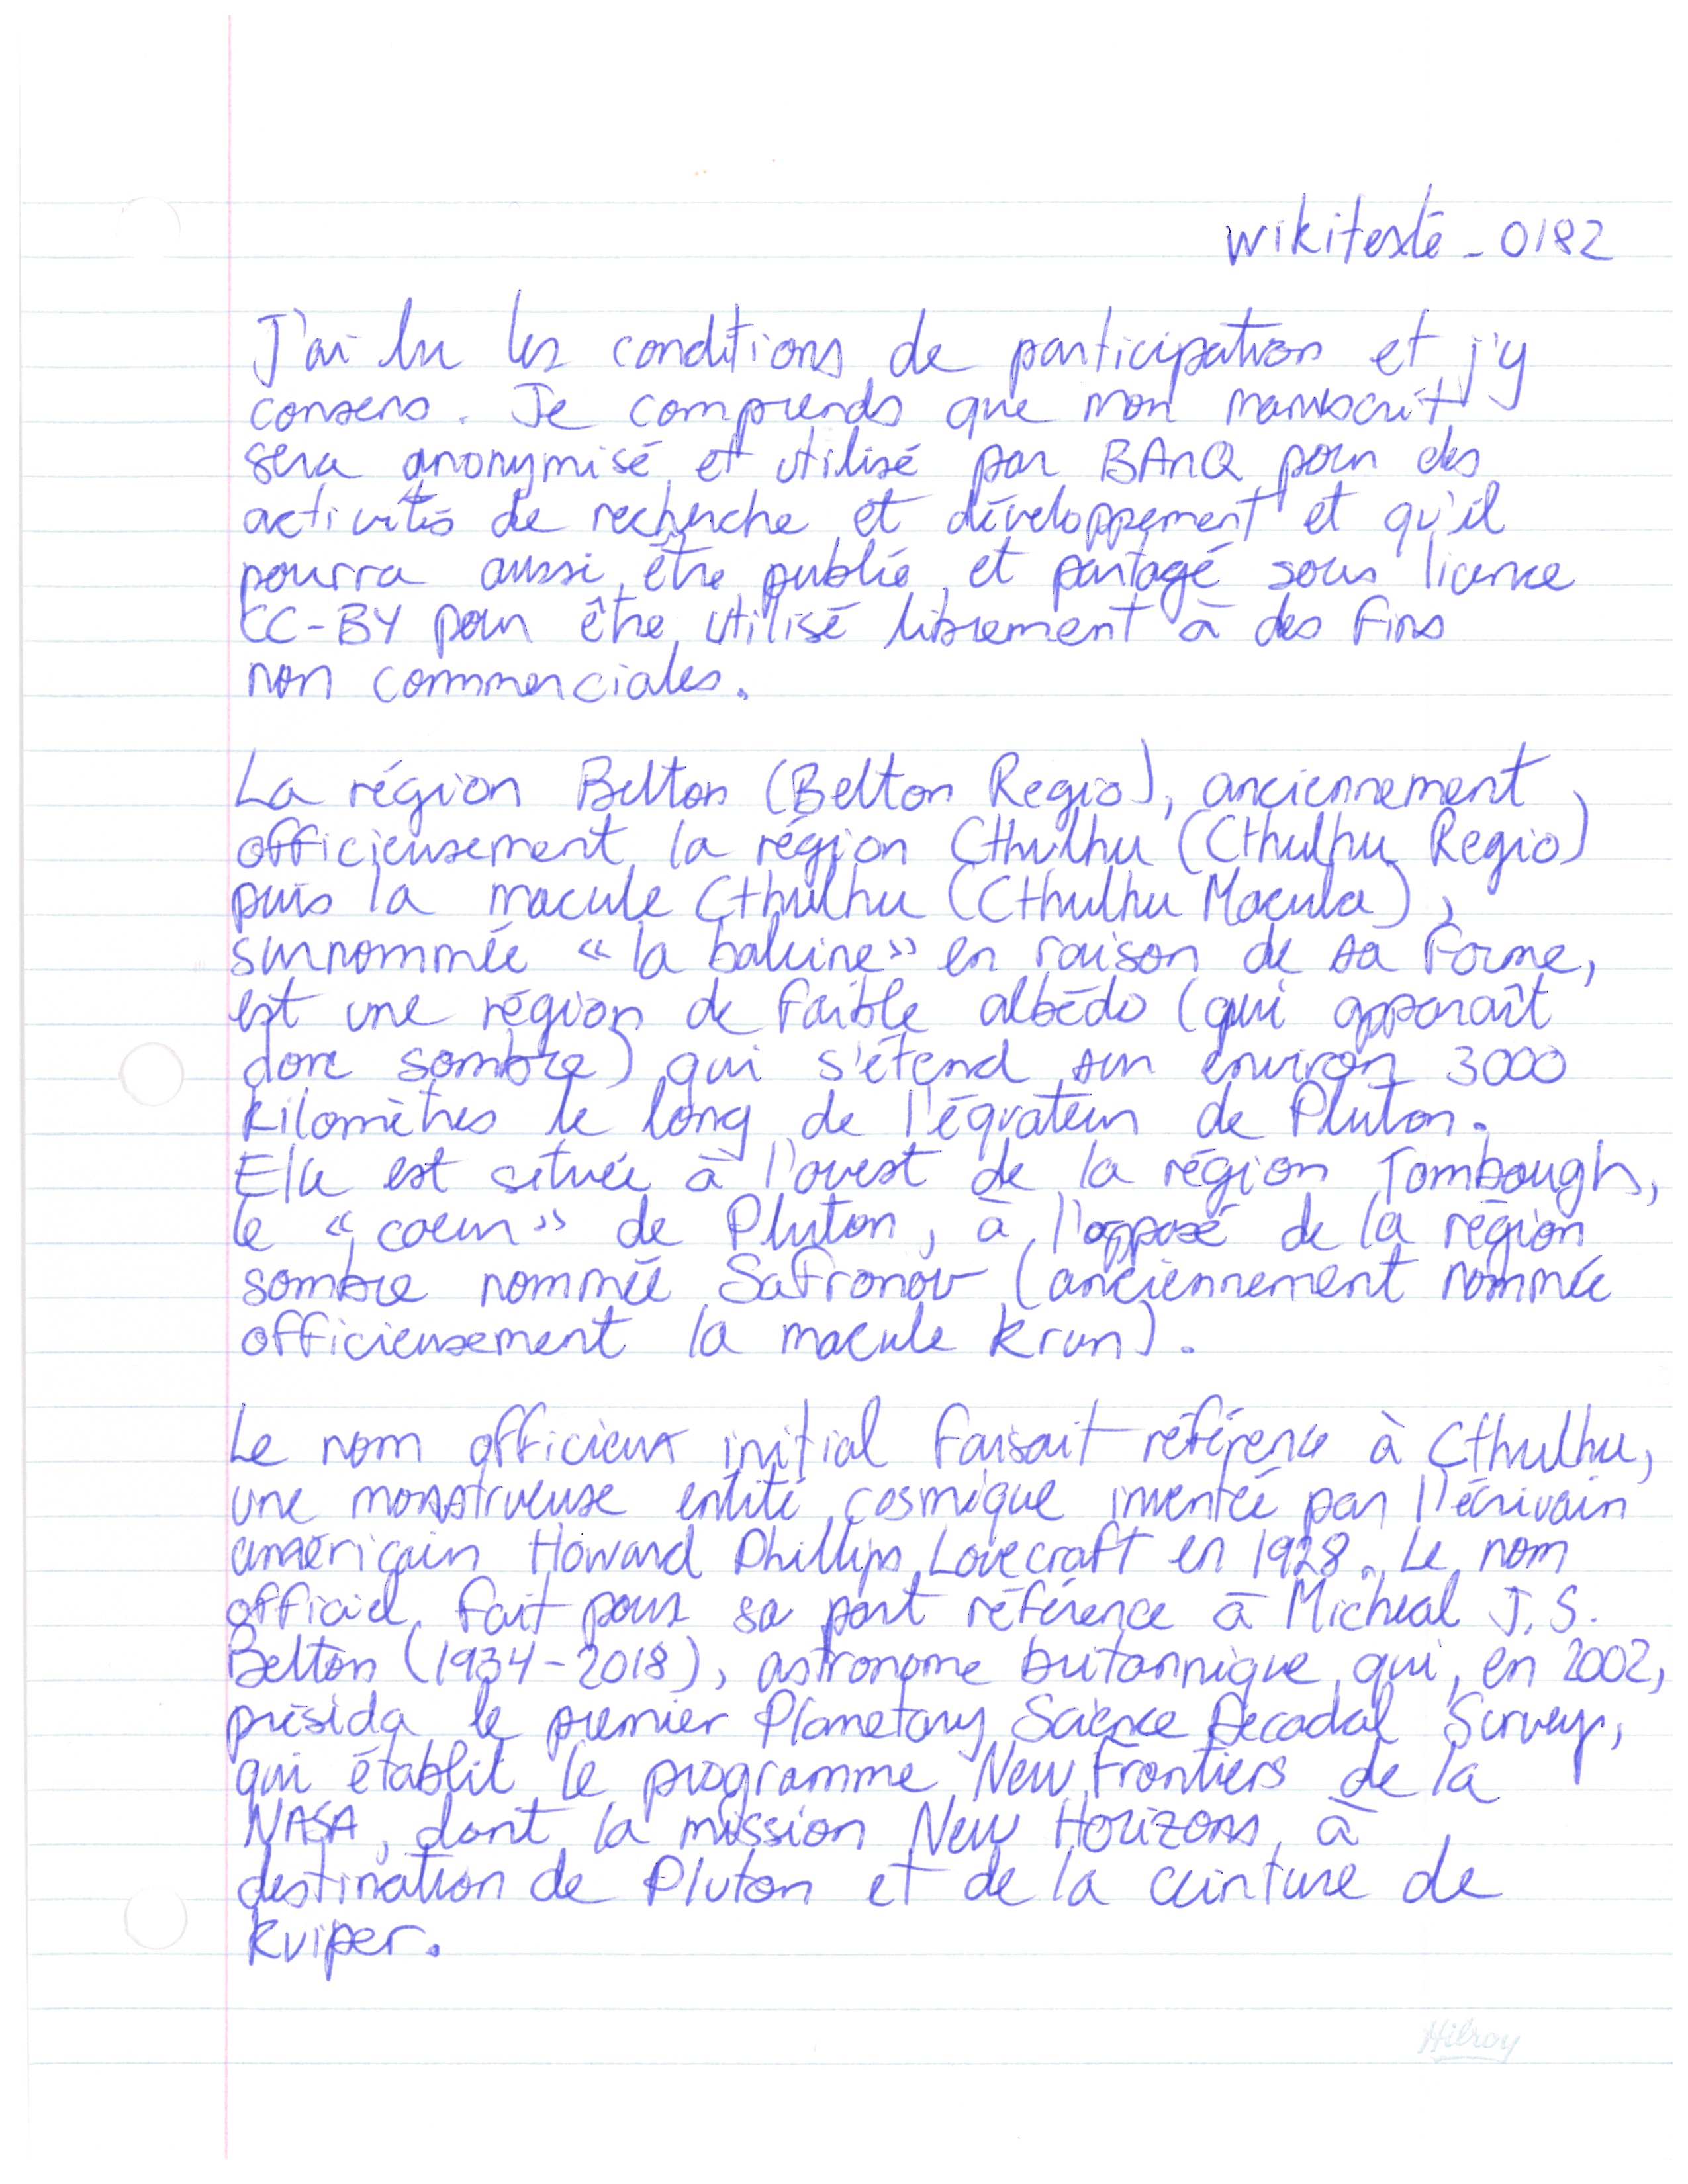 wikitexte_0182
J'ai lu les conditions de participation et j'y
consens. Je comprends que mon manuscrit
sera anonymisé et utilisé par BAnQ pour des
activités de recherche et développement et qu'il
pourra aussi être publié et partagé sous licence
CC-BY pour être utilisé librement à des fins
non commerciales.
La région Belton (Belton Regio), anciennement
officieusement la région Cthulhu (Cthulhu Regio)
puis la macule Cthulhu (Cthulhu Macula),
surnommée « la baleine » en raison de sa forme,
est une région de faible albédo (qui apparaît
donc sombre) qui s'étend sur environ 3000
kilomètres le long de l'équateur de Pluton.
Elle est située à l'ouest de la région Tombough,
le « coeur » de Pluton, à l'opposé de la région
sombre nommée Safronov (anciennement nommée
officieusement la macule Krun).
Le nom officieux initial faisait référence à Cthulhu,
une monstrueuse entité cosmique inventée par l'écrivain
américain Howard Phillips Lovecraft en 1928. Le nom
officiel fait pour sa part référence à Micheal J.S.
Belton (1934-2018), astronome britannique qui, en 2002,
présida le premier Planetary Science Decadal Survey,
qui établit le programme New Frontiers de la
NASA, dont la mission New Horizons à
destination de Pluton et de la ceinture de
Kuiper.
Hilroy